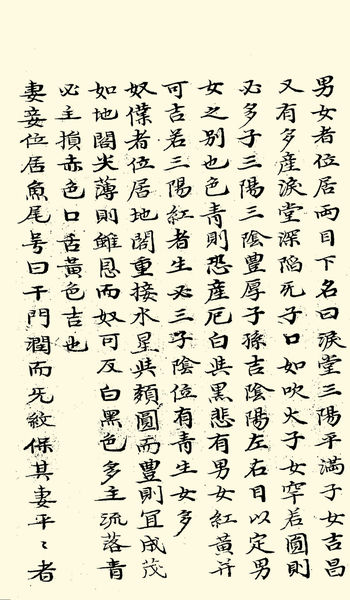 男女者位居両目下名曰淚堂三陽平滿子女吉昌
又有多産淚堂深陥旡子口如吹火子女罕若圓則
必多子三陽三陰豊厚子孫吉陰陽左右目以定男
女之別也色青則恐産厄白与黒悲有男女紅黄并
可吉若三陽紅者生必三子陰位有青生女多
奴僕者位居地閣重接水星与頦圓而豊則冝成茂
如地閣尖薄則雖恩而奴可反白黒色多主流落青
必主損赤色口舌黄色吉也
妻妾位居魚尾号曰干門潤而旡紋保其妻平〻者